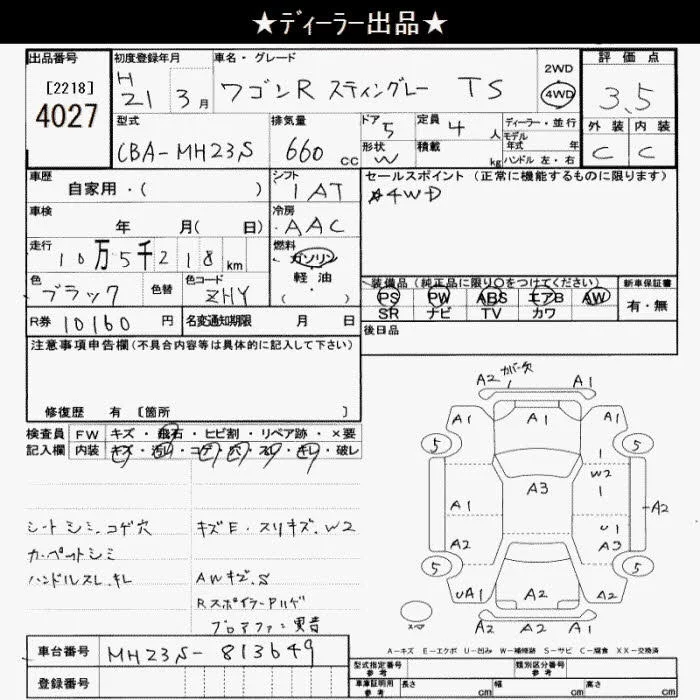 ★ディーラー出品★
出品番号
[2218]
4027
初度登録年月
H
21 3月
車名・グレード
ワゴンR スティングレー TS
2WD
4WD
評価点
3.5
型式
CBA-MH23S
排気量
660 cc
ドア
5
形状
W
定員
4人
積載
kg
ディーラー・並行
モデル
年式 年
ハンドル 左・右
外装 内装
C C
車歴
自家用・( )
シフト
IAT
セールスポイント(正常に機能するものに限ります)
4WD
車検
年 月( 日)
冷房
AAC
走行
10万5千218km
燃料
ガソリン
・
軽油
( )
色
ブラック
色替
色コード
ZHY
装備品(純正品に限り○をつけてください)
PS PW ABS エアB AW
SR ナビ TV カワ
新車保証書
有・無
R券 10160円
名変通知期限 月 日
後日品
注意事項申告欄(不具合内容等は具体的に記入して下さい)
修復歴 有 [箇所 ]
検査員
記入欄
FW キズ・飛石・ヒビ割・リペア跡・×要
内装 キズ・汚れ・コゲ・穴・スレ・キレ・破レ
シートシミ.コゲ穴
カーペットシミ
ハンドルスレ.キレ
キズE・スリキズ.W2
AWキズ.S
Rスポイラークリハゲ
ブロアファン異音
A2 カバー欠 A1
A1 A1 A1
5 5
1
W2
1
A3
A1
A2
U1
A2 A3
5 5
UA1 A2 A2
A2 A2 A1
スペア
A-キズ E-エクボ U-凹み W-補修跡 S-サビ C-腐食 XX-交換済
車台番号 MH23S-813649
登録番号
型式指定番号
参考
類別区分番号
参考
車庫証明用
参考
長さ cm
幅 cm
高さ cm